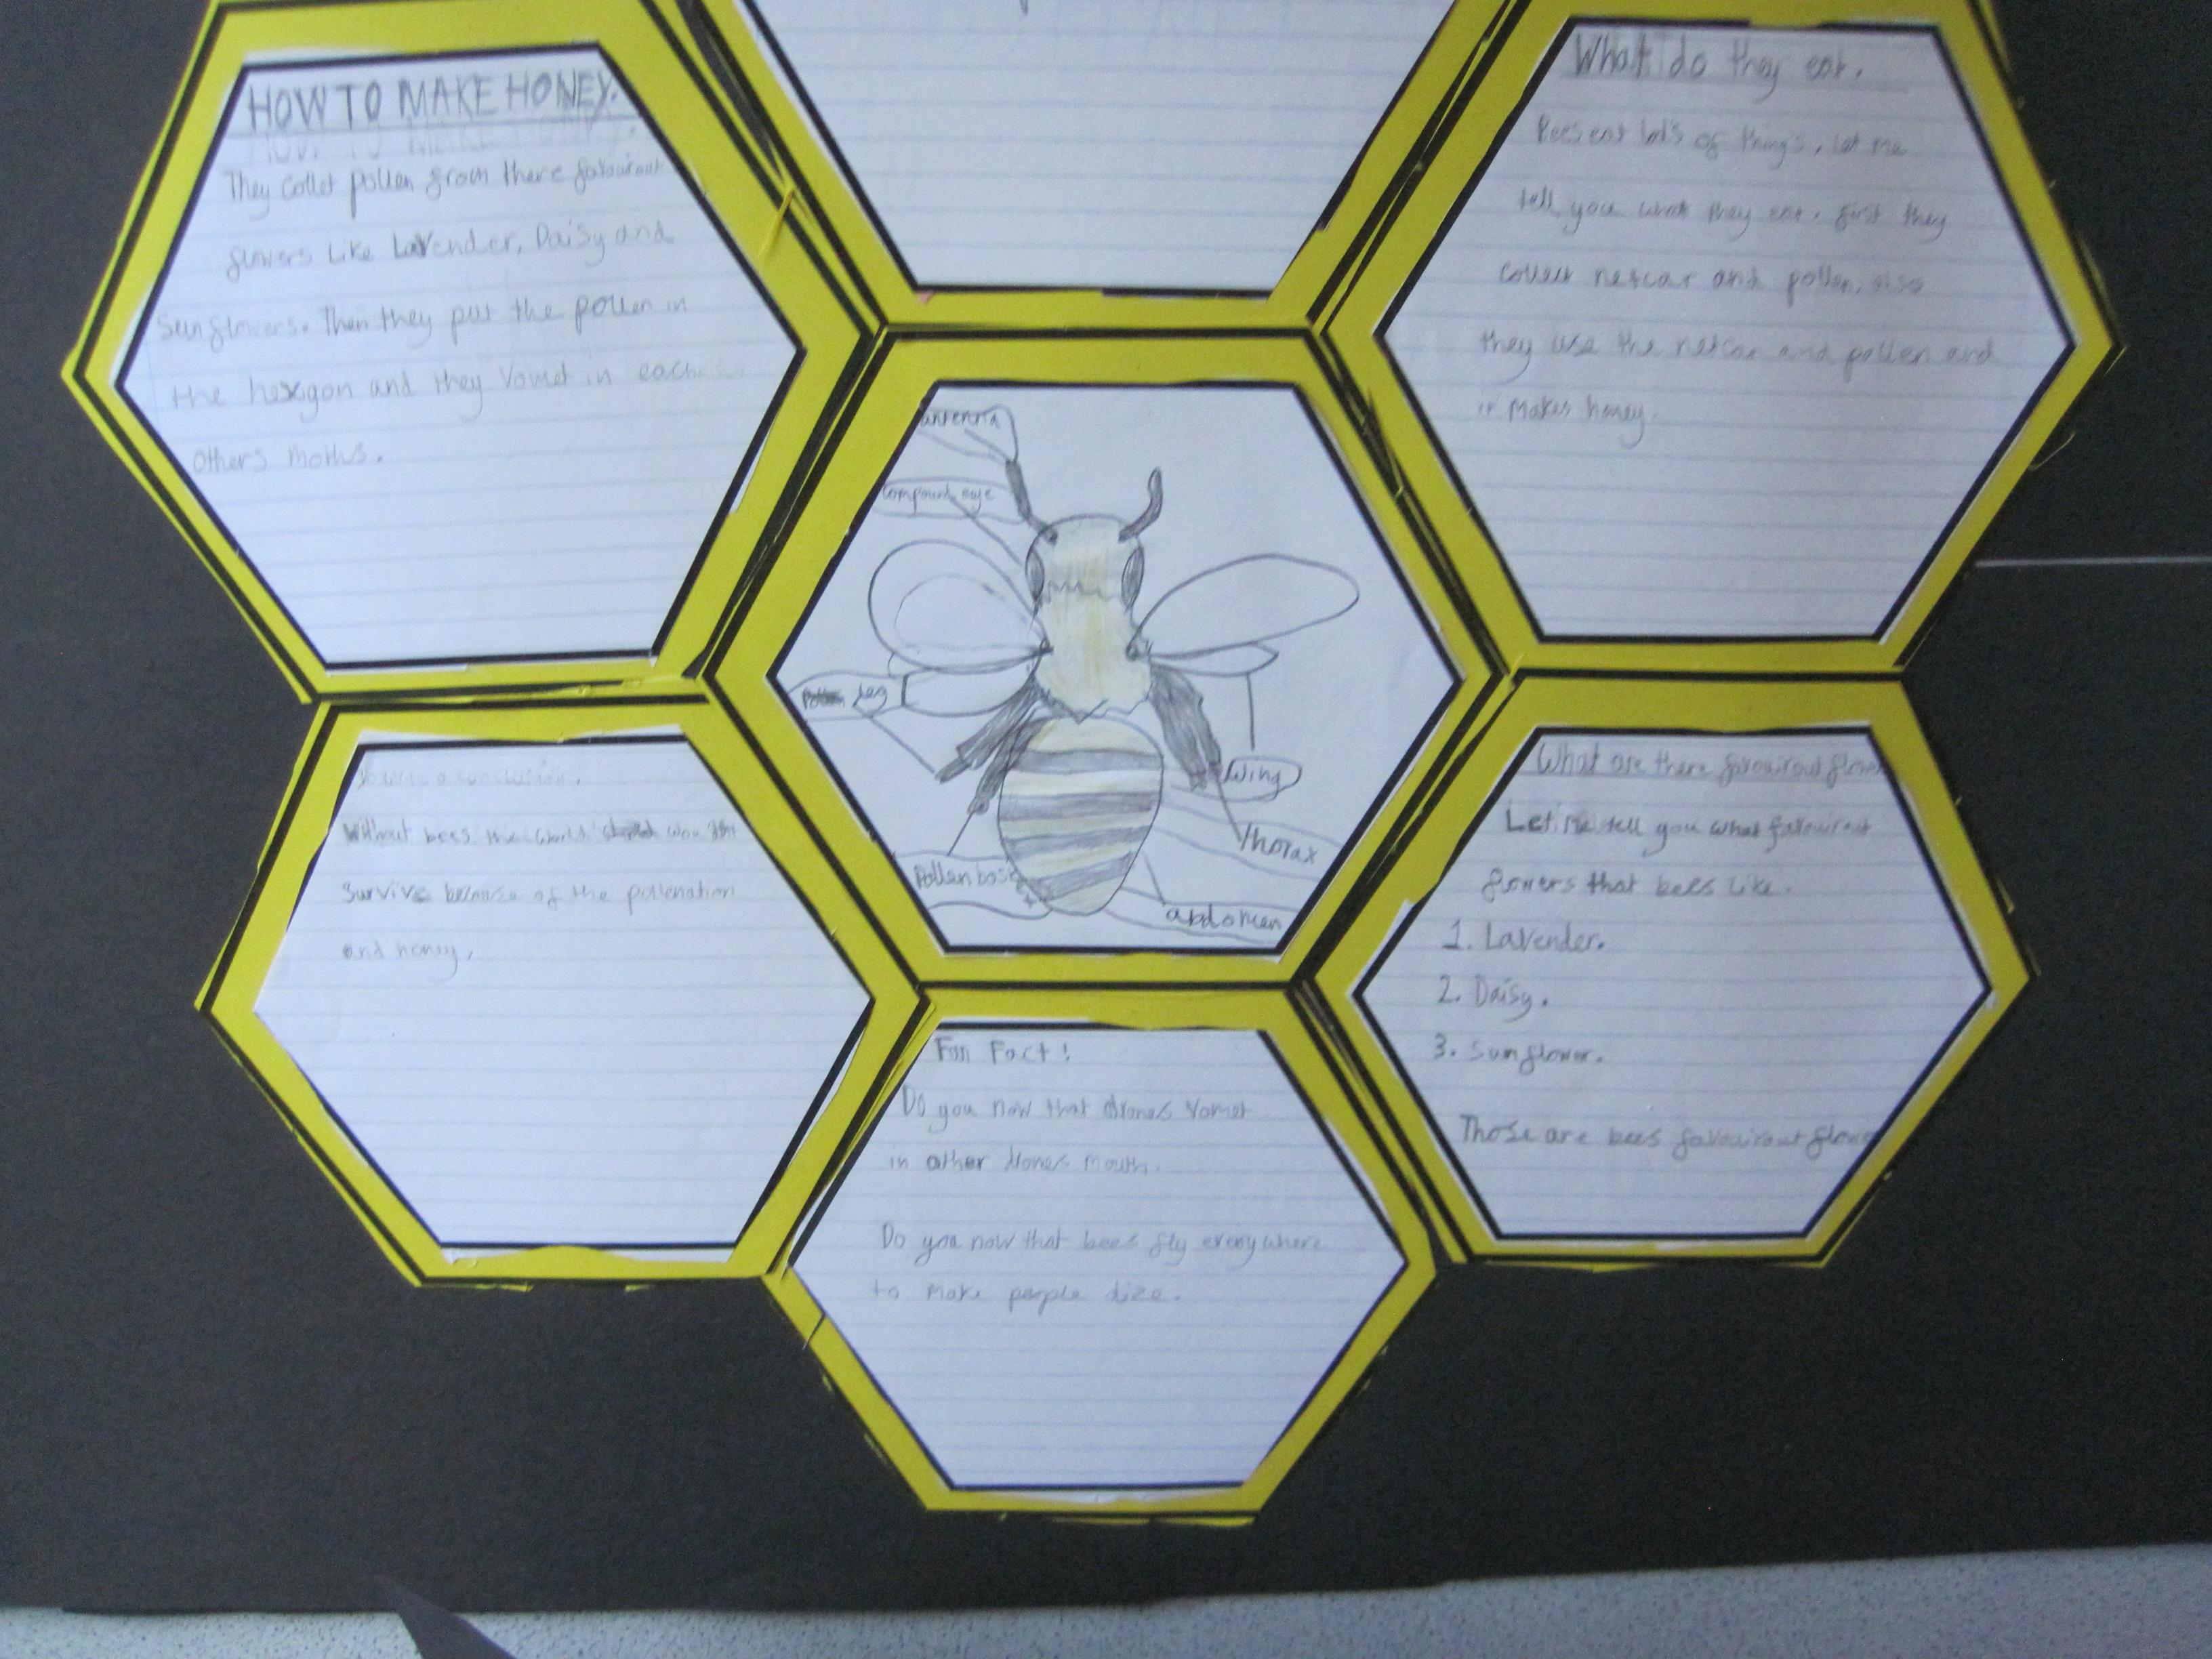 HOW TO MAKE HONEY.
They collet pollen from there favourout
flowers like Lavender, Daisy and
Sunflowers. Then they put the pollen in
the hexigon and they Vomet in each
others moths.
What do they eat.
Bees eat lots of thing's, let me
tell you what they eat. first they
collect netcar and pollen, also
they use the netcar and pollen and
it makes honey.
antenna
compound eye
leg
Pollen bask
Wing
Thorax
abdomen
a conclution.
Without bees the world
survive because of the pollenation
and honey.
What are there favourout
Let me tell you what favourout
flowers that bees like.
1. Lavender.
2. Daisy.
3. Sunflower.
Those are bees favouirout
Fun Fact!
Do you now that drones vomet
in other drones mouth.
Do you now that bees fly everywhere
to make people dize.